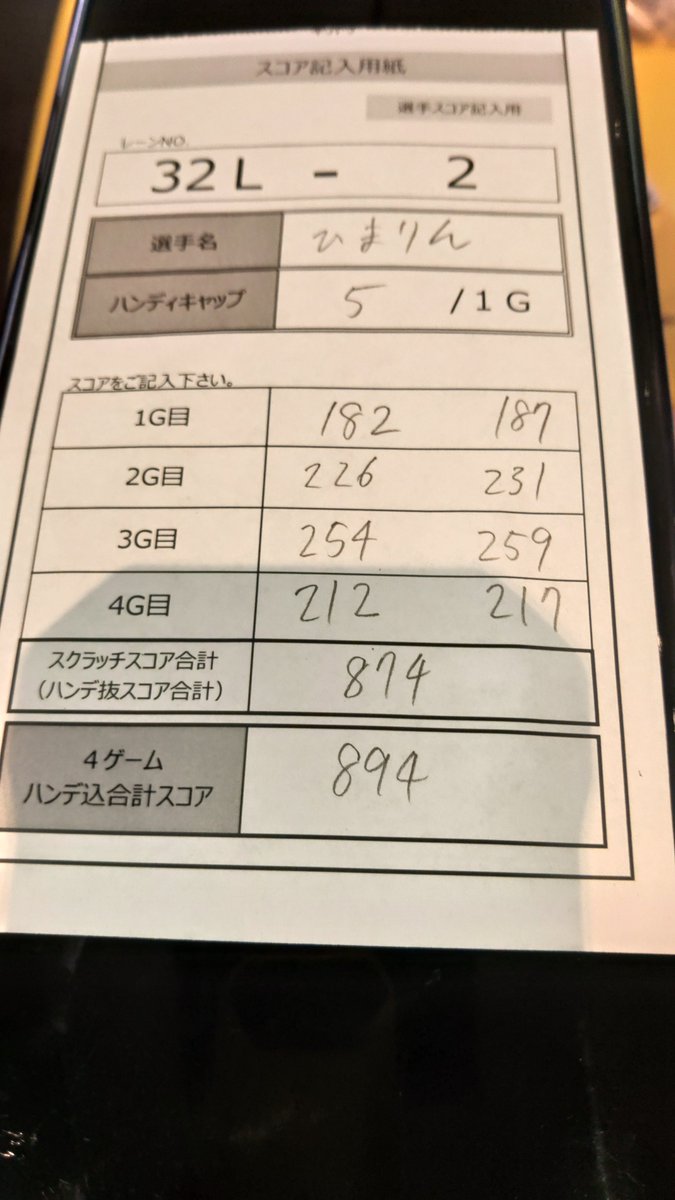 スコア記入用紙
選手スコア記入用
レーンNO.
32L - 2
選手名 ひまりん
ハンディキャップ 5 /1G
スコアをご記入下さい。
1G目 182 187
2G目 226 231
3G目 254 259
4G目 212 217
スクラッチスコア合計
(ハンデ抜スコア合計) 874
4ゲーム
ハンデ込合計スコア 894